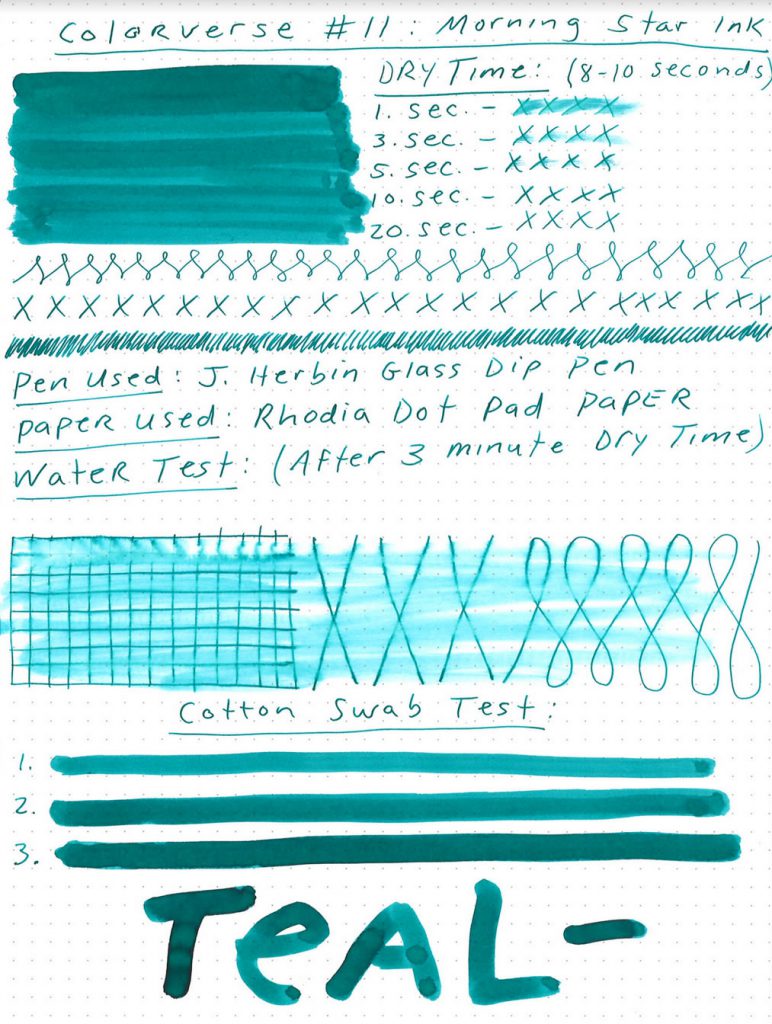 Colorverse #11: Morning Star Ink
DRY Time: (8-10 seconds)
1. sec. - x x x x
3. sec. - x x x x
5. sec. - x x x x
10. sec. - x x x x
20. sec. - x x x x
x x x x x x x x x x x x x x x x x x x x x x x x
Pen Used: J. Herbin Glass Dip Pen
Paper Used: Rhodia Dot Pad PAPER
Water Test: (After 3 minute Dry Time)
Cotton Swab Test:
1.
2.
3.
TeAL-